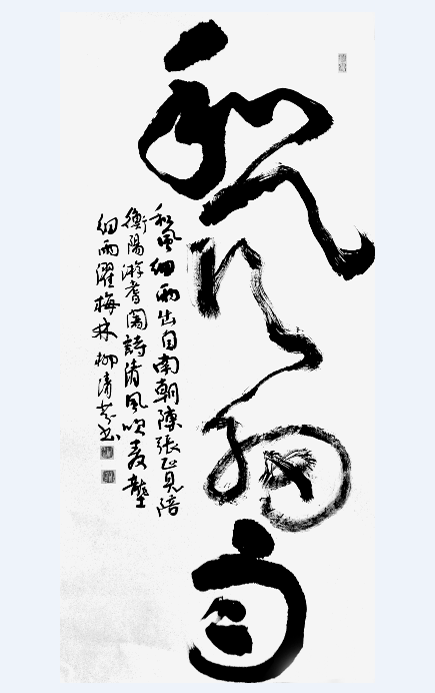 和风细雨
和風細雨出自南朝陳張正見陪
衡陽游耆闍詩清風吹麦壟
細雨濯梅林 柳清芬书